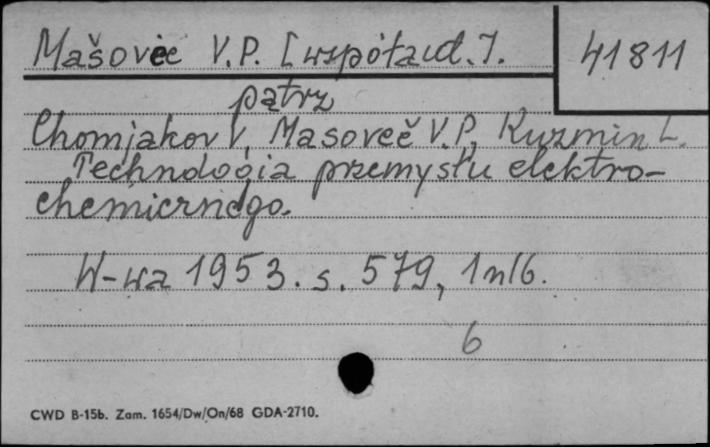 Mašoveč V.P. [współaut.].
41811
patrz
Chomjakov V., Masoveč V.P., Kuzmin L.
Technologia przemysłu elektro-
chemicznego.
W-wa 1953. s. 579, 1 nlb.
6
CWD B-15b. Zam. 1654/Dw/On/68 GDA-2710.